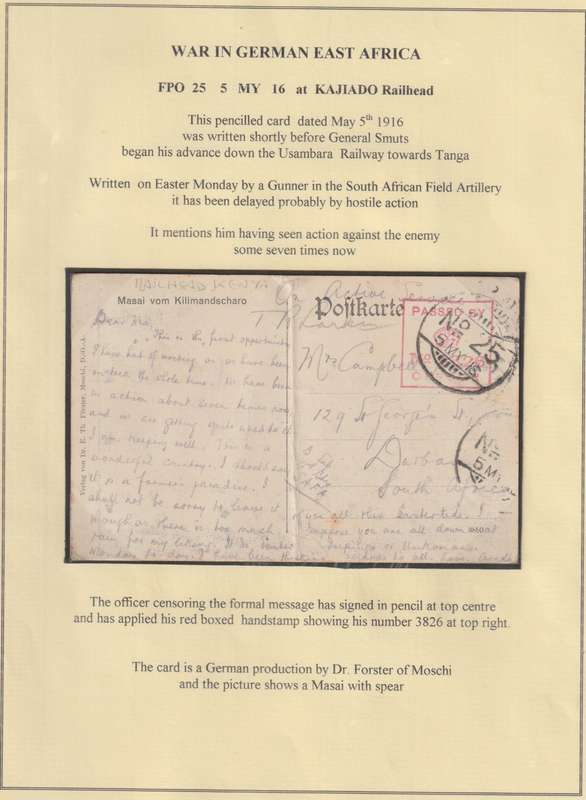 WAR IN GERMAN EAST AFRICA
FPO 25 5 MY 16 at KAJIADO Railhead
This pencilled card dated May 5th 1916
was written shortly before General Smuts
began his advance down the Usambara Railway towards Tanga
Written on Easter Monday by a Gunner in the South African Field Artillery
it has been delayed probably by hostile action
It mentions him having seen action against the enemy
some seven times now
RAILHEAD KENYA
On Active Service
Masai vom Kilimandscharo
Postkarte
PASSED BY
No 25
5 MY 16
No
5 MY
Verlag von Dr. E. Th. Förster, Moschi, D.-O.-A.
Mrs Campbell
129 St George's St
Durban
South Africa
This is the first opportunity
I have had of writing as we have been
on the whole time. We have been
in action about seven times now
and we are getting quite used to it
I am keeping well. This is a
wonderful country. I should say
it is a farmers paradise. I
shall not be sorry to leave it
though as there is too much
rain for my liking. It is Easter
Monday to day. I have been
you all this Eastertide. I
suppose you are all down
The officer censoring the formal message has signed in pencil at top centre
and has applied his red boxed handstamp showing his number 3826 at top right.
The card is a German production by Dr. Forster of Moschi
and the picture shows a Masai with spear